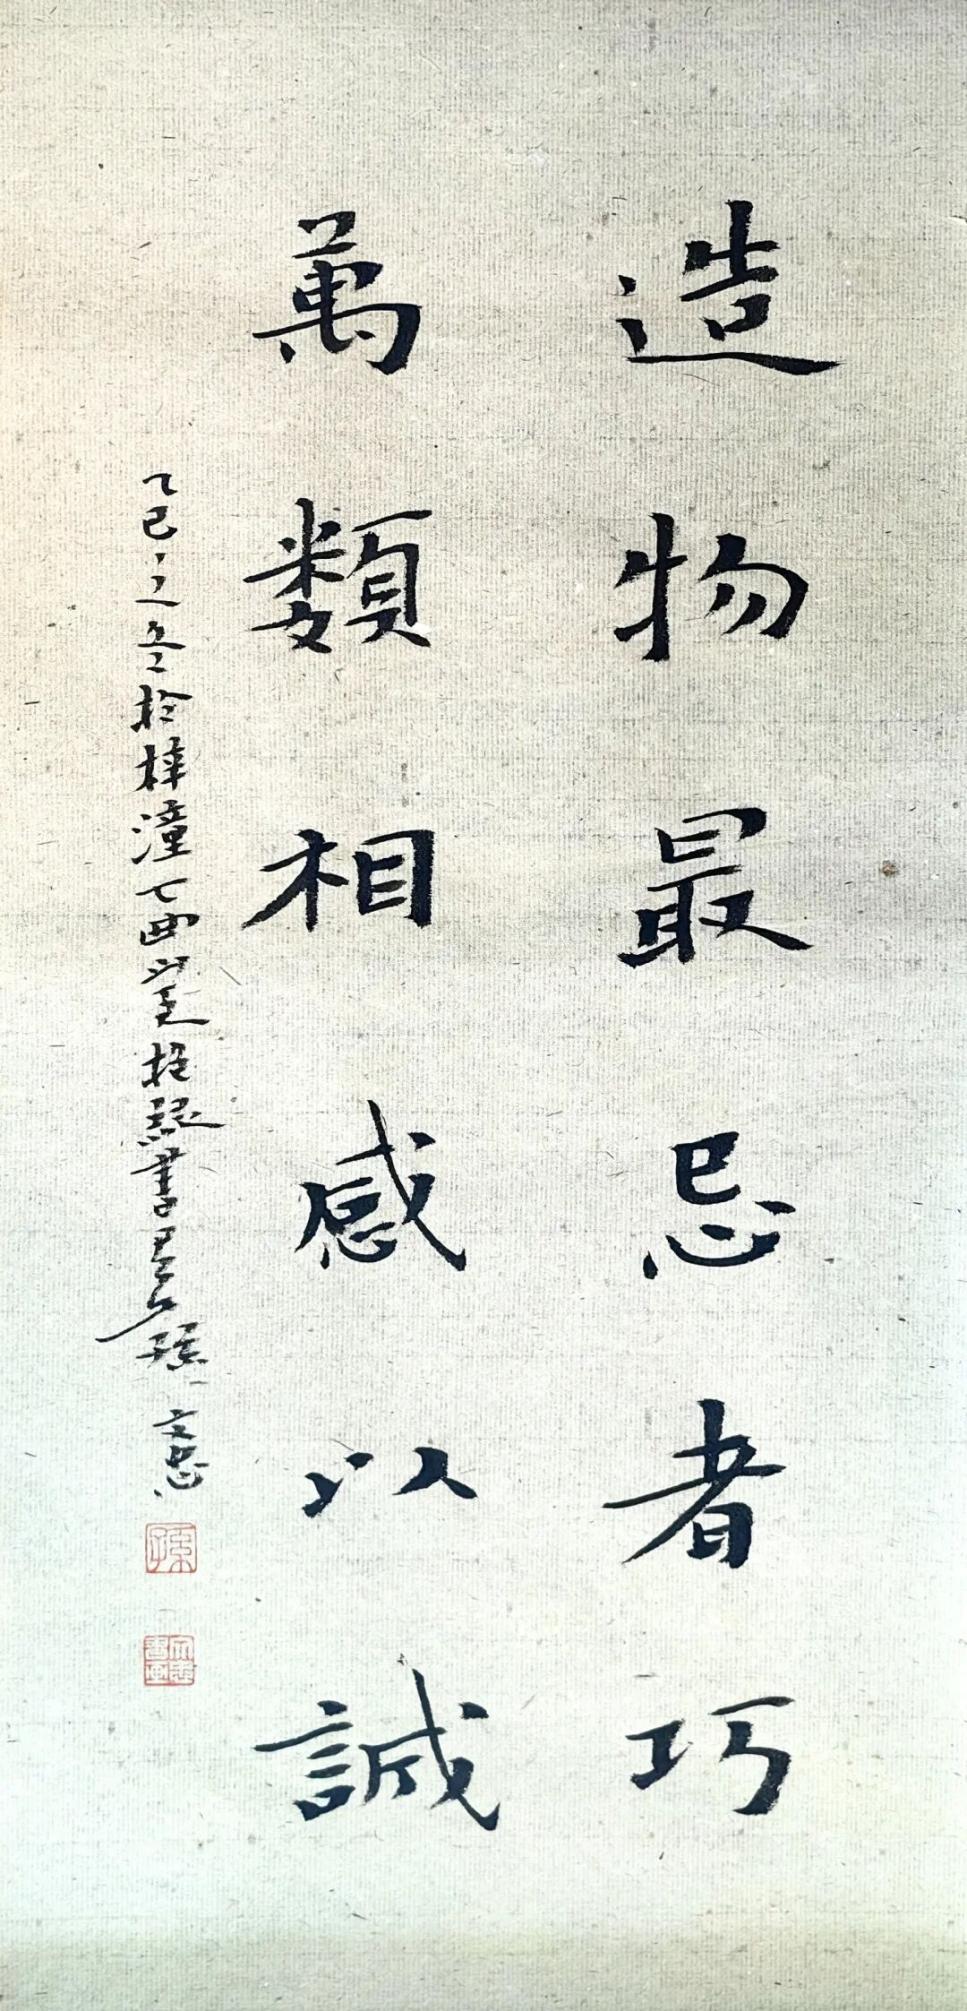 造物最忌者巧
萬類相感以誠
乙巳之冬於梓潼七曲山書 孫文忠
孫